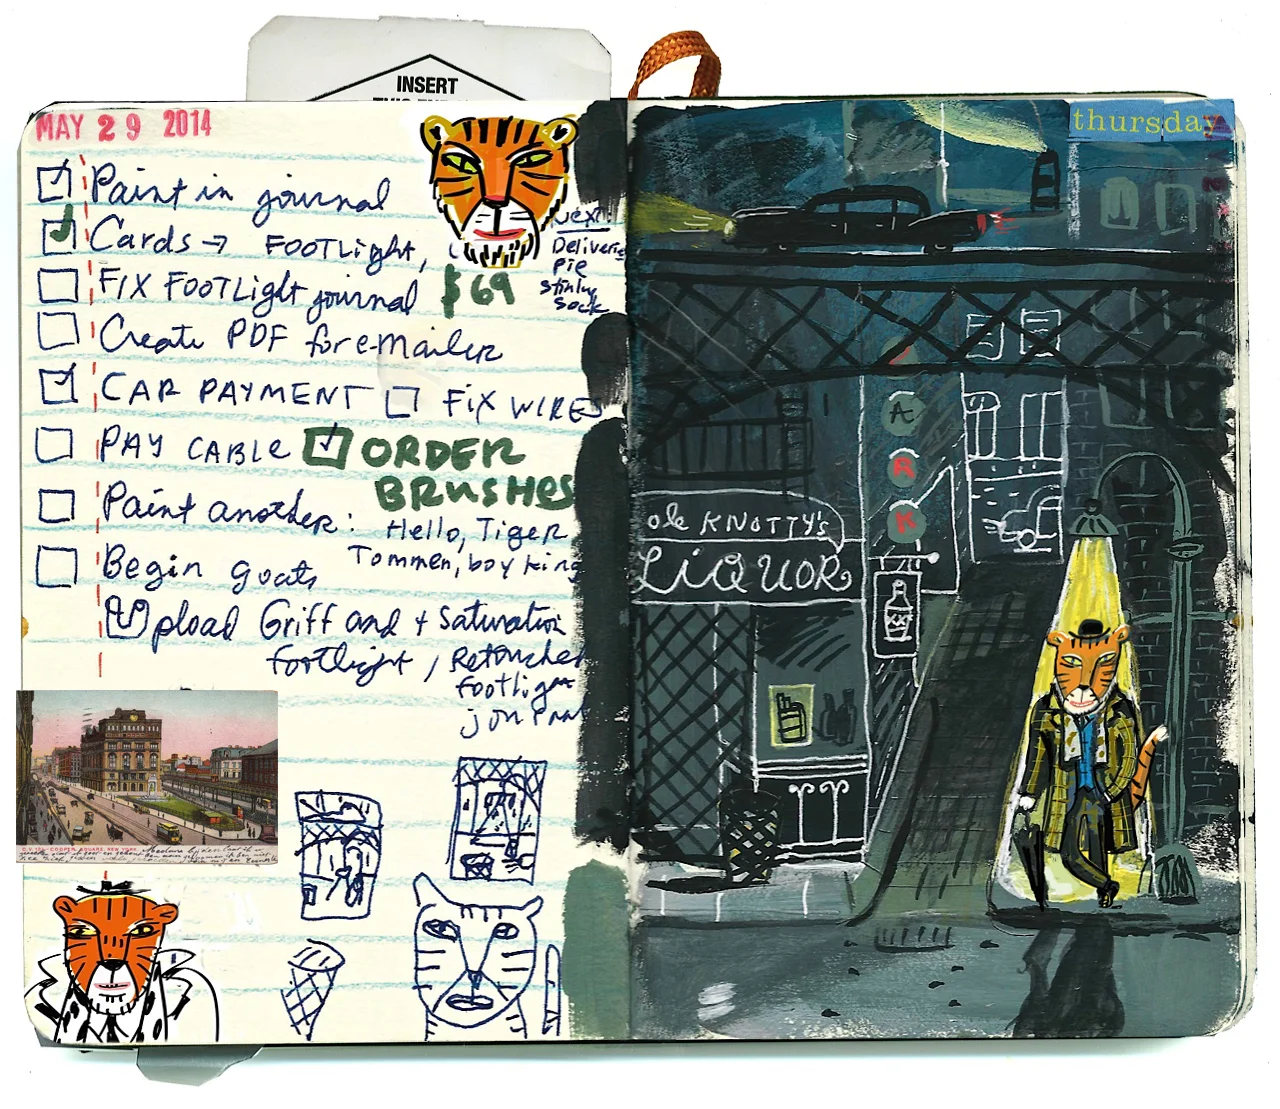 INSERT
MAY 29 2014
Paint in journal
Cards → FOOTLight,
Next:
Deliveries
Pie
Stinky
Sock
FIX FOOTLight journal $69
Create PDF for e-mailer
CAR PAYMENT FIX WIRES
PAY CABLE ORDER
BRUSHES
Paint another: Hello, Tiger
Tommen, boy king
Begin goats
Upload Griff and + Saturation
footlight, Retouched
footlight
journal
C.V. 121 COOPER SQUARE, NEW YORK.
thursday
PARK
ole KNOTTY's
LiQUOR
XX